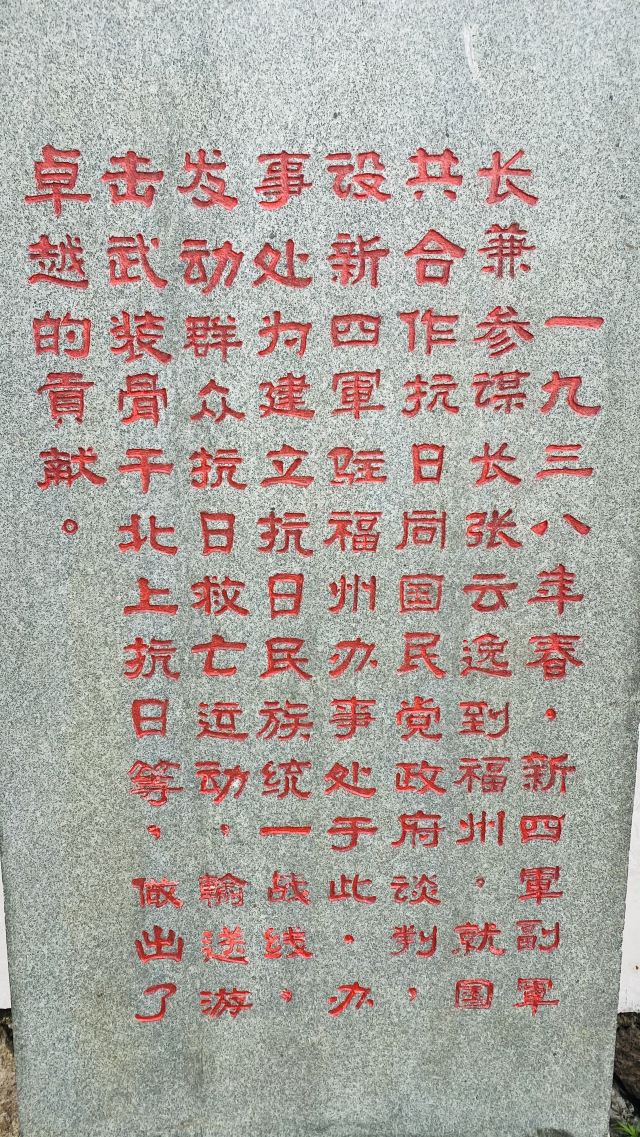 一九三八年春，新四軍副軍
长兼参谋长张云逸到福州，就国
共合作抗日同国民党政府谈判，
设新四軍驻福州办事处于此，办
事处为建立抗日民族统一战线，
发动群众抗日救亡运动，輸送游
击武装骨干北上抗日等，做出了
卓越的貢献。